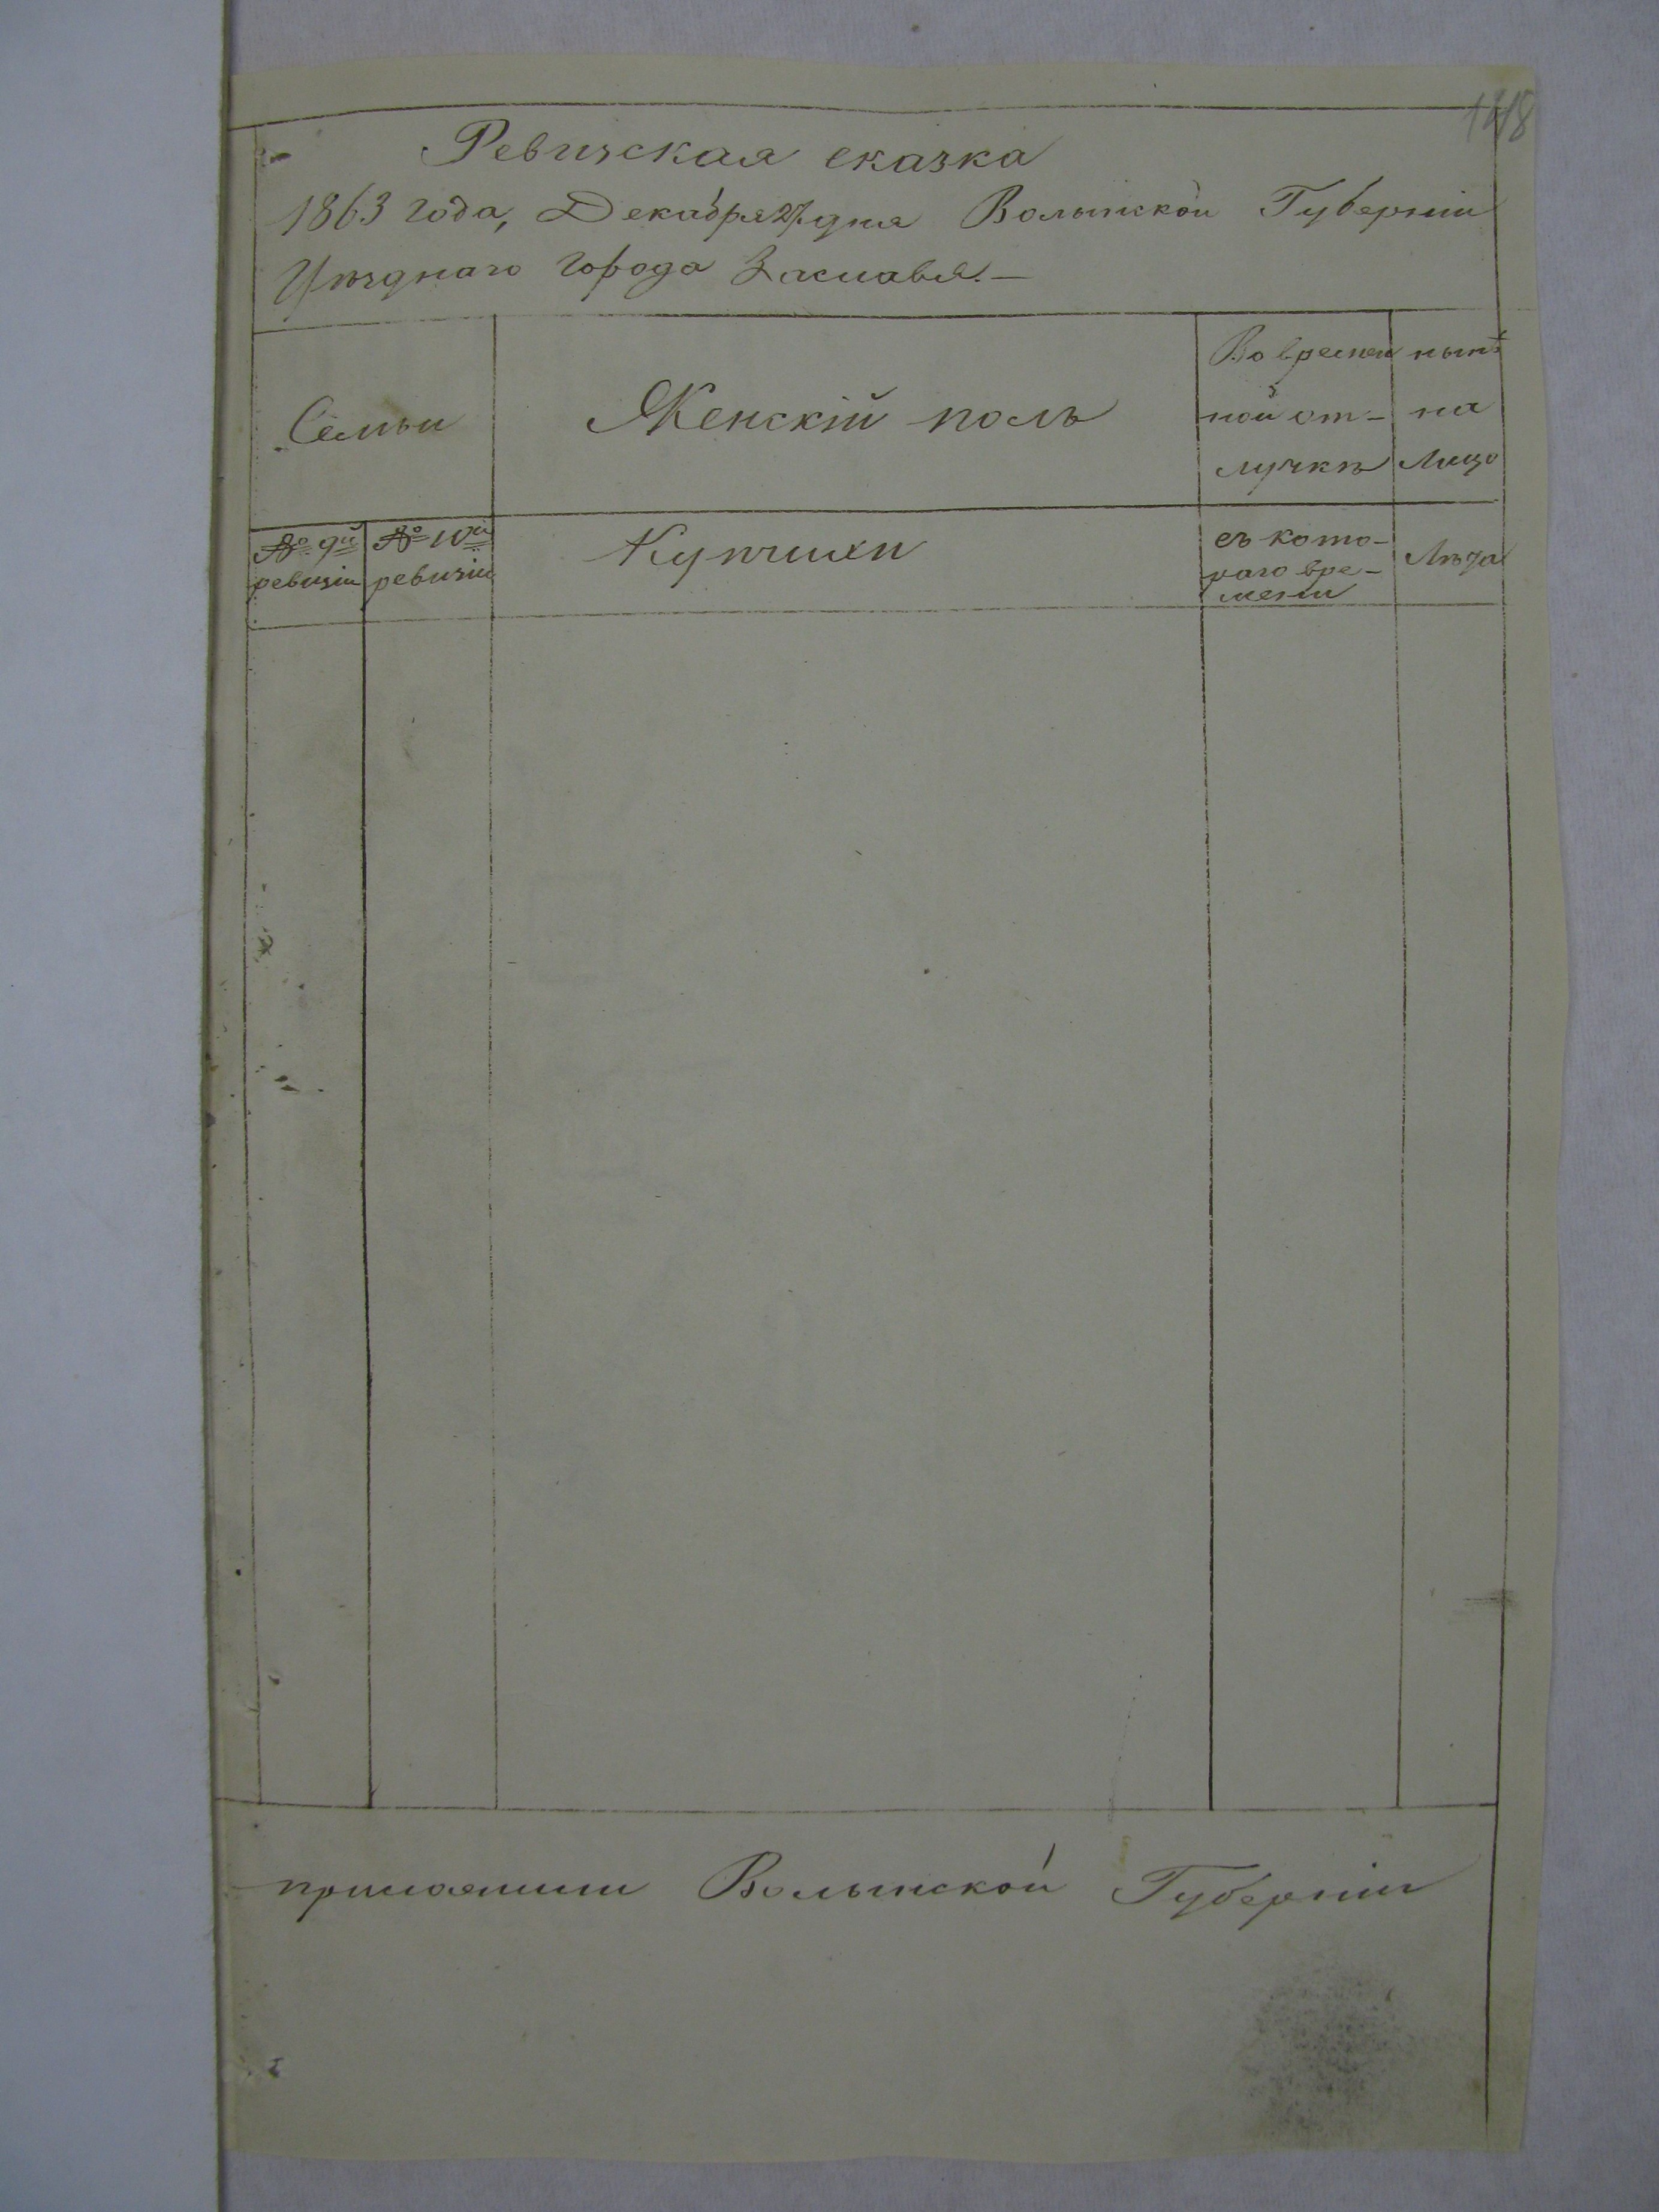 148
Ревизская сказка
1863 года, Декабря 27 дня Волынской Губерніи
Уѣзднаго города Заславля.—
Семьи
Женскій полъ
Во времен
ной от-
лучкѣ
нынѣ
на
Лицо
№ 9й
ревизіи
№ 10й
ревизіи
Купчихи
съ кото-
раго вре-
мени
Лѣта
Волынской Губерніи